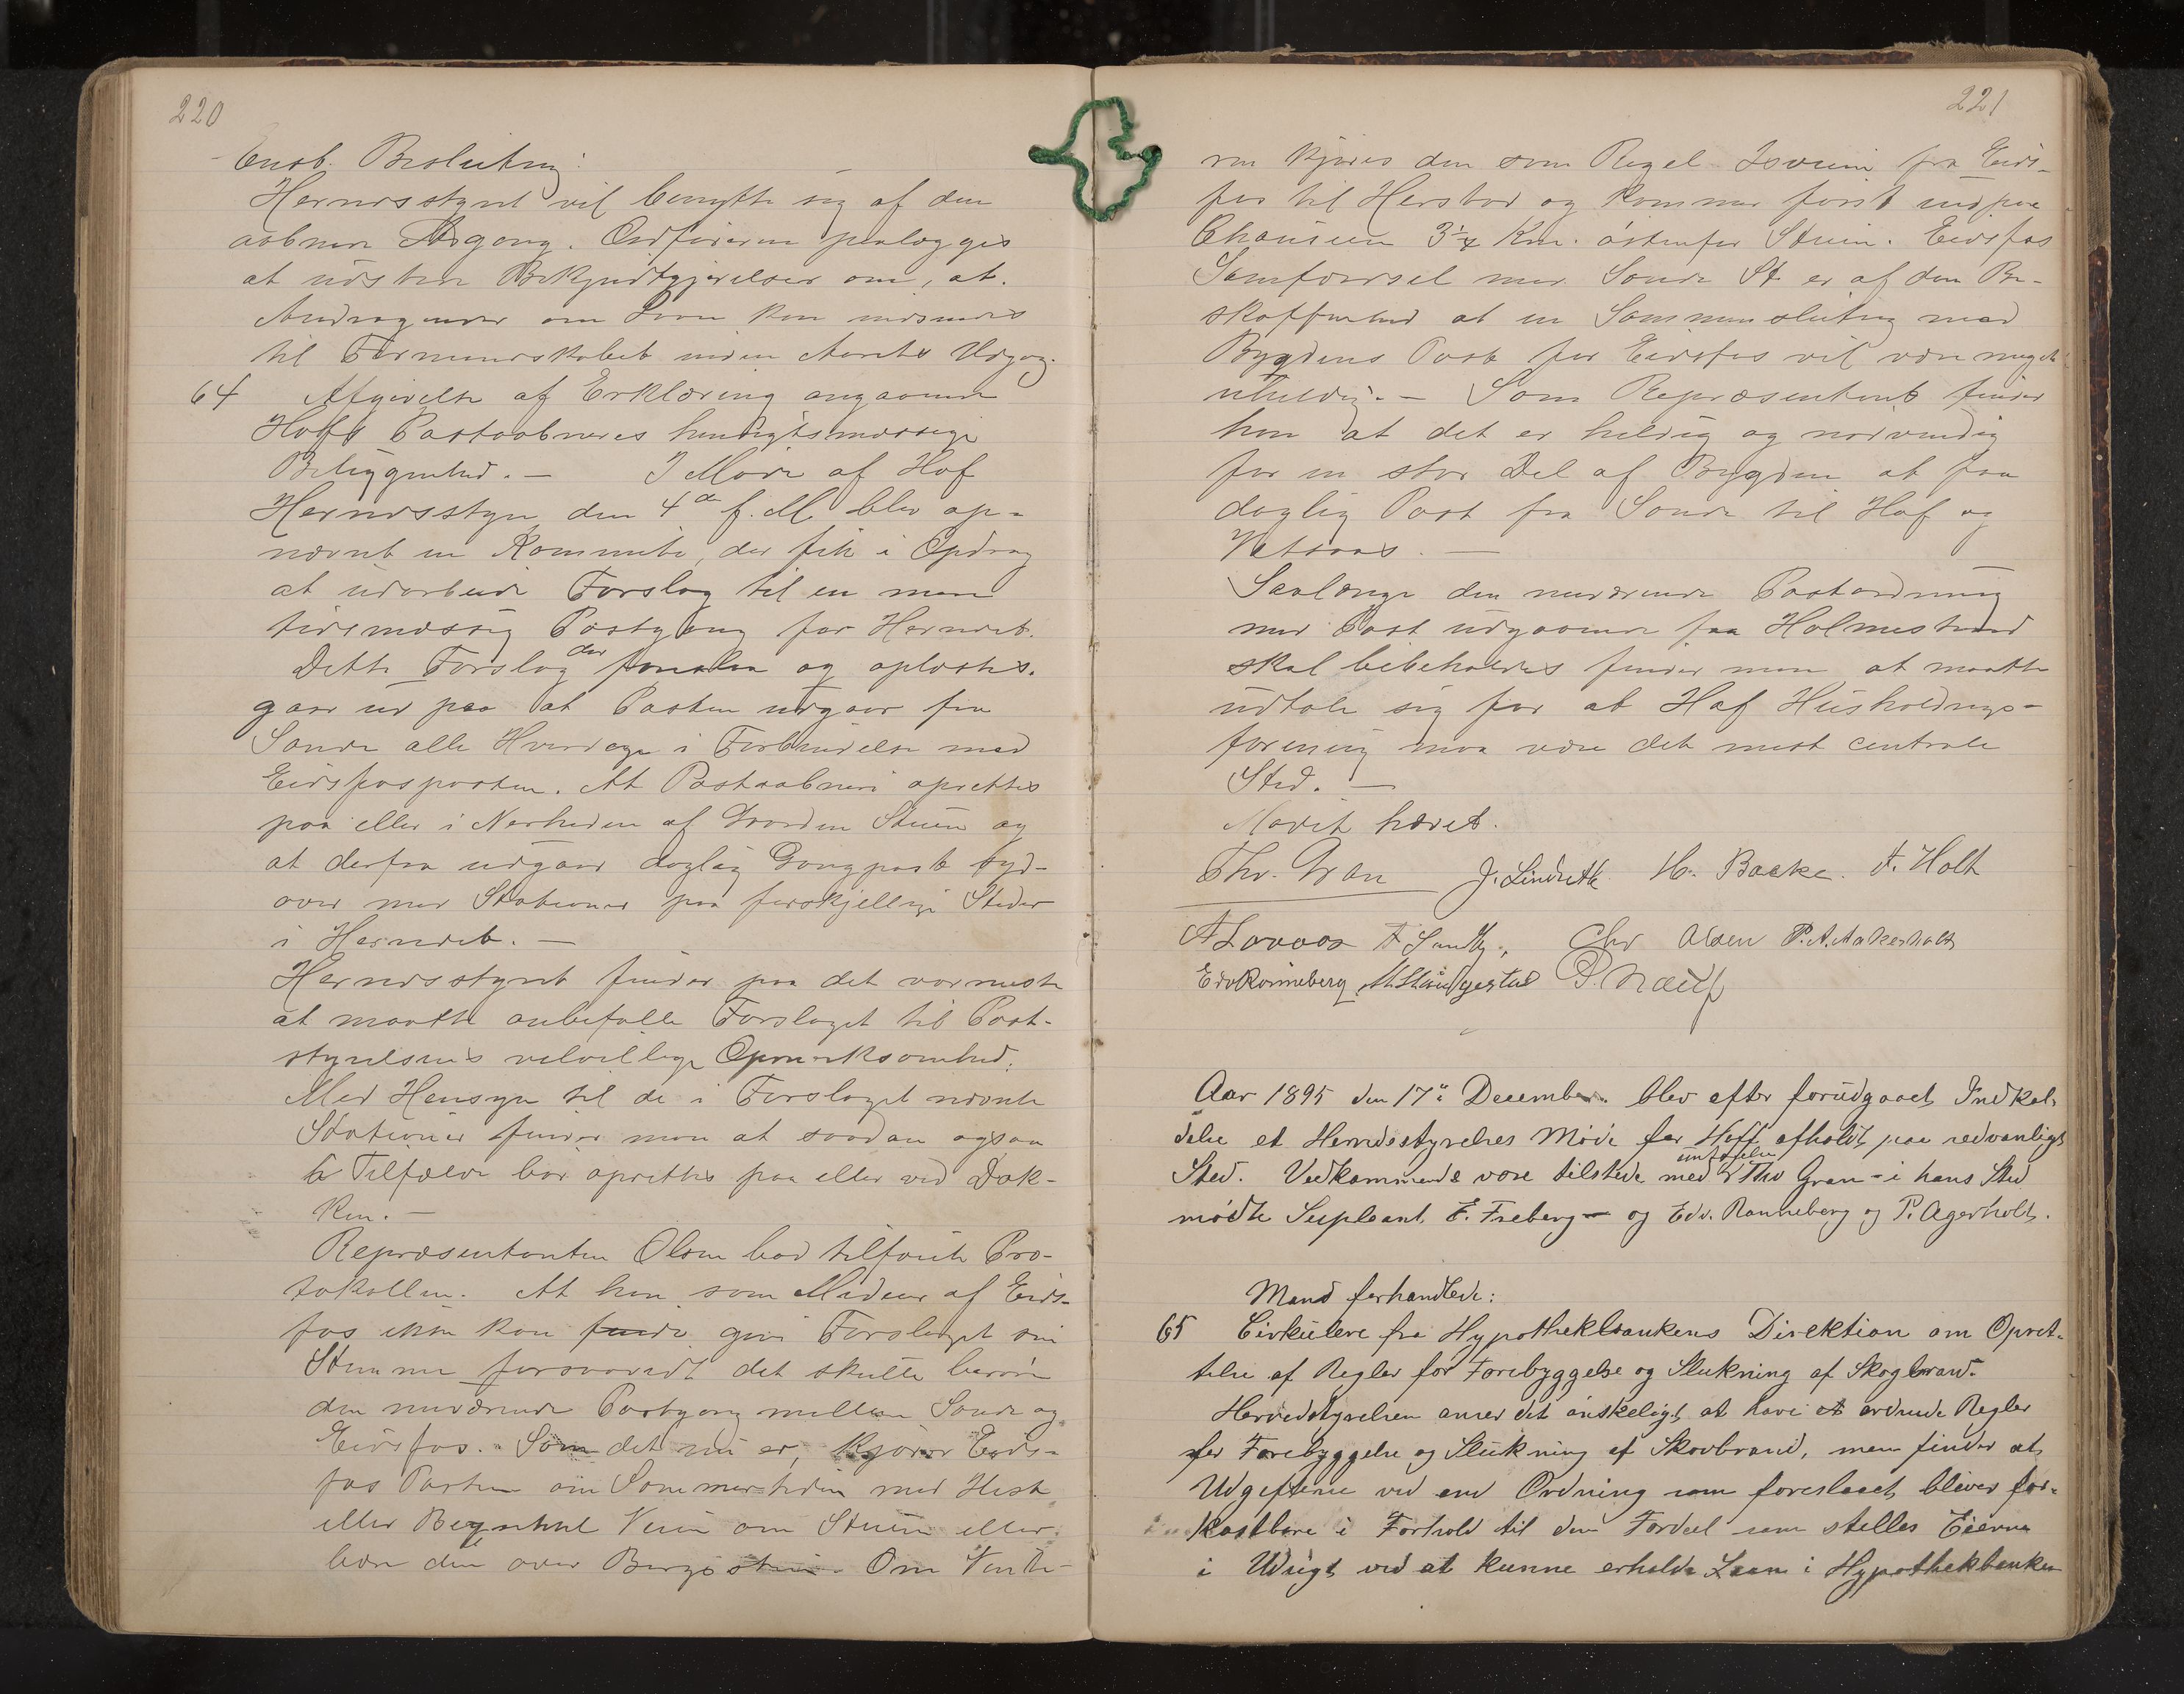 220
Enst. Beslutning:
Herredsstyret vil benytte sig af den
aabnede Adgang. Ordføreren paalægges
at udstede Bekjendtgjørelser om, at
Andragender om Laan kan indsendes
til Formandskabet inden Aarets Udgang.
64 Afgivelse af Erklæring angaaende
Hoffs Postaabneris hensigtsmæssige
Beliggenhed. — I Møde af Hof
Herredsstyre den 4de f. M. blev op-
nævnt en Kommite, der fik i Opdrag
at udarbeide Forslag til en mere
tidsmæssig Postgang for Herredet.
Dette Forslag der forelaa og oplæstes.
gaar ud paa at Posten udgaar fra
Sande alle Hverdage i Forbindelse med
Eidsfosposten. At Postaabneri oprettes
paa eller i Nærheden af Gaarden Stuen og
at derfra udgaar daglig Gangpost syd-
over med Stationer paa forskjellige Steder
i Herredet. —
Herredsstyret finder paa det varmeste
at maatte anbefale Forslaget til Post-
styrelsens velvillige Opmærksomhed.
Med Hensyn til de i Forslaget nævnte
Stationer finder man at saadan ogsaa
i Tilfælde bør oprettes paa eller ved Dak-
ken. —
Repræsentanten Olsen bad tilført Pro-
tokollen. At han som Mideier af Eids-
fos ikke kan finde give Forslaget sin
Stemme forsaavidt det skulle berøre
den nuværende Postgang mellem Sande og
Eidsfos. Som det nu er, kjører Eids-
fos Posten om Sommertiden med Hest
eller Veien om Stuen eller
bære den over Om Vinte-
221
ren kjøres den som Regel Isveien fra Eids-
fos til Hersbod og kommer først ind paa
Chauseen 3¼ Km. østenfor Stuen. Eidsfos
Samfærsel med Sande St er af den Be-
skaffenhed at en Sammenslutning med
Bygdens Post for Eidsfos vil være meget
uheldig. — Som Repræsentant finder
han at det er heldig og nødvendig
for en stor Del af Bygden at faa
daglig Post fra Sande til Hof og
Vassaas. —
Saalænge den nuværende Postordning
med Post udgaaende fra Holmestrand
skal bibeholdes finder man at maatte
udtale sig for at Hof Husholdnings-
forening maa være det mest centrale
Sted. —
Mødet hævet.
Thv. Gran J. Lindseth H. Backe. A. Holt
A Lovaas F Sundby, Chr Olsen P. A. Aakerholt
Edv Rønneberg
Aar 1895 den 17de December blev efter forudgaaet Indkal-
delse et Herredsstyrelses Møde for Hoff afholdt paa sedvanligt
Sted. Vedkommende vare tilstede med undtagelse Thv Gran - i hans Sted
mødte Supleant E. Freberg — og Edv. Ranneberg og P. Agerholdt.
Mand forhandlede:
65 Cirkulere fra Hypothekbankens Direktion om Opret-
telse af Regler for Forebyggelse og Slukning af Skogbrand.
Herredstyrelsen anser det ønskeligt at have et ordnede Regler
for Forebyggelse og Slukning af Skovbrand, men finder at
Udgifterne ved en Ordning som foreslaaet bliver for
kostbare i Forhold til den Fordeel som stilles Eierne
i Udsigt ved at kunne erholde Laan i Hypothekbanken